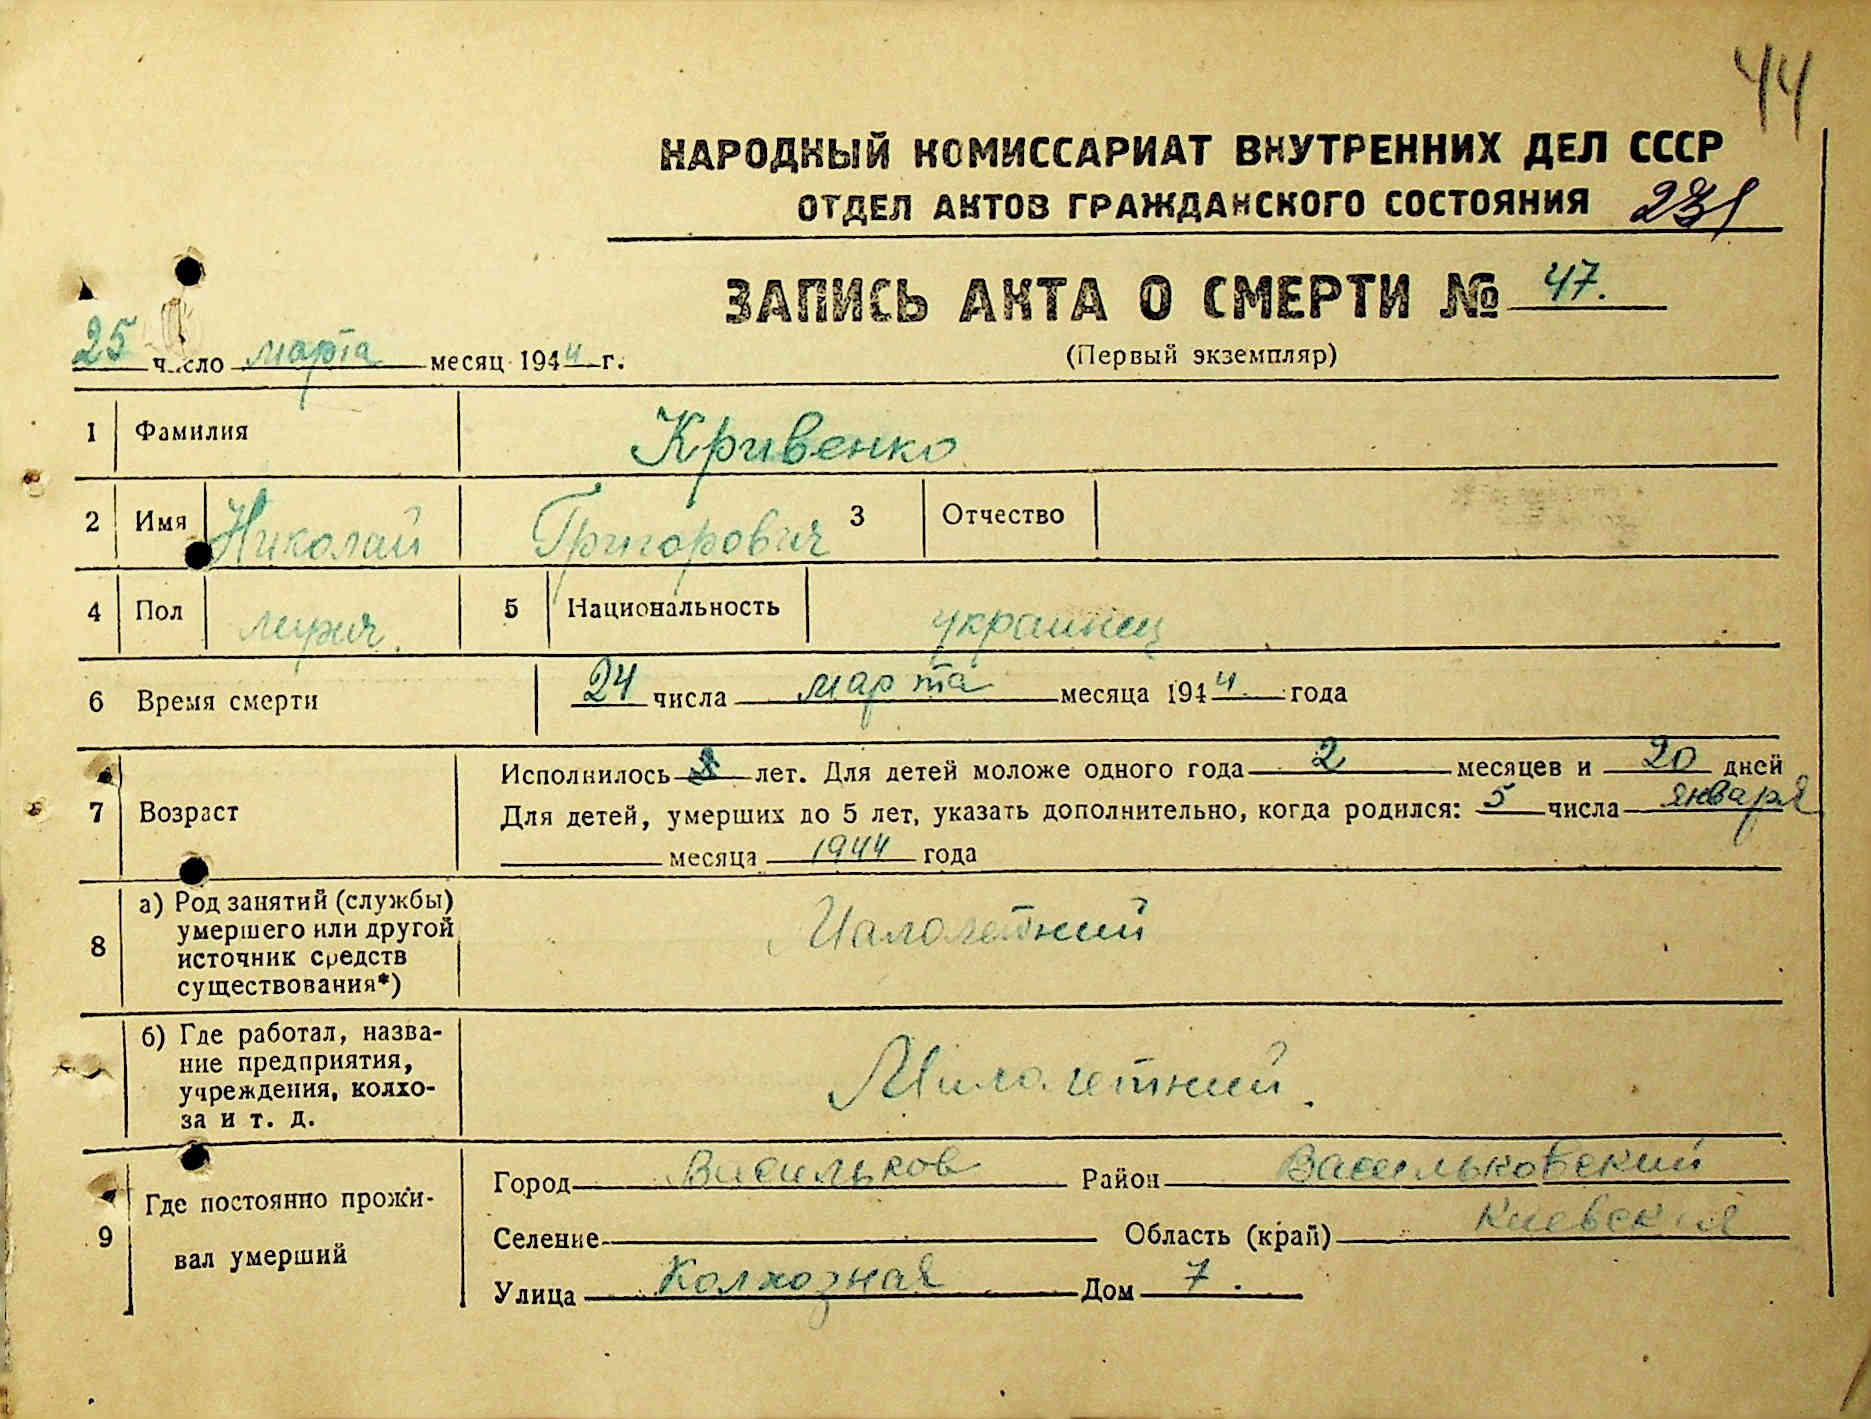 44
НАРОДНЫЙ КОМИССАРИАТ ВНУТРЕННИХ ДЕЛ СССР
ОТДЕЛ АКТОВ ГРАЖДАНСКОГО СОСТОЯНИЯ 231
ЗАПИСЬ АКТА О СМЕРТИ № 47.
25 число марта месяц 1944 г.
(Первый экземпляр)
1 Фамилия Кривенко
2 Имя Николай Григорович 3 Отчество
4 Пол мужч. 5 Национальность украинец
6 Время смерти 24 числа марта месяца 1944 года
7 Возраст
Исполнилось лет. Для детей моложе одного года 2 месяцев и 20 дней
Для детей, умерших до 5 лет, указать дополнительно, когда родился: 5 числа января
месяца 1944 года
8 а) Род занятий (службы)
умершего или другой
источник средств
существования*)
Малолетний
б) Где работал, назва-
ние предприятия,
учреждения, колхо-
за и т. д.
Малолетний.
9 Где постоянно прожи-
вал умерший
Город Васильков Район Васильковский
Селение Область (край) Киевская
Улица Колхозная Дом 7.